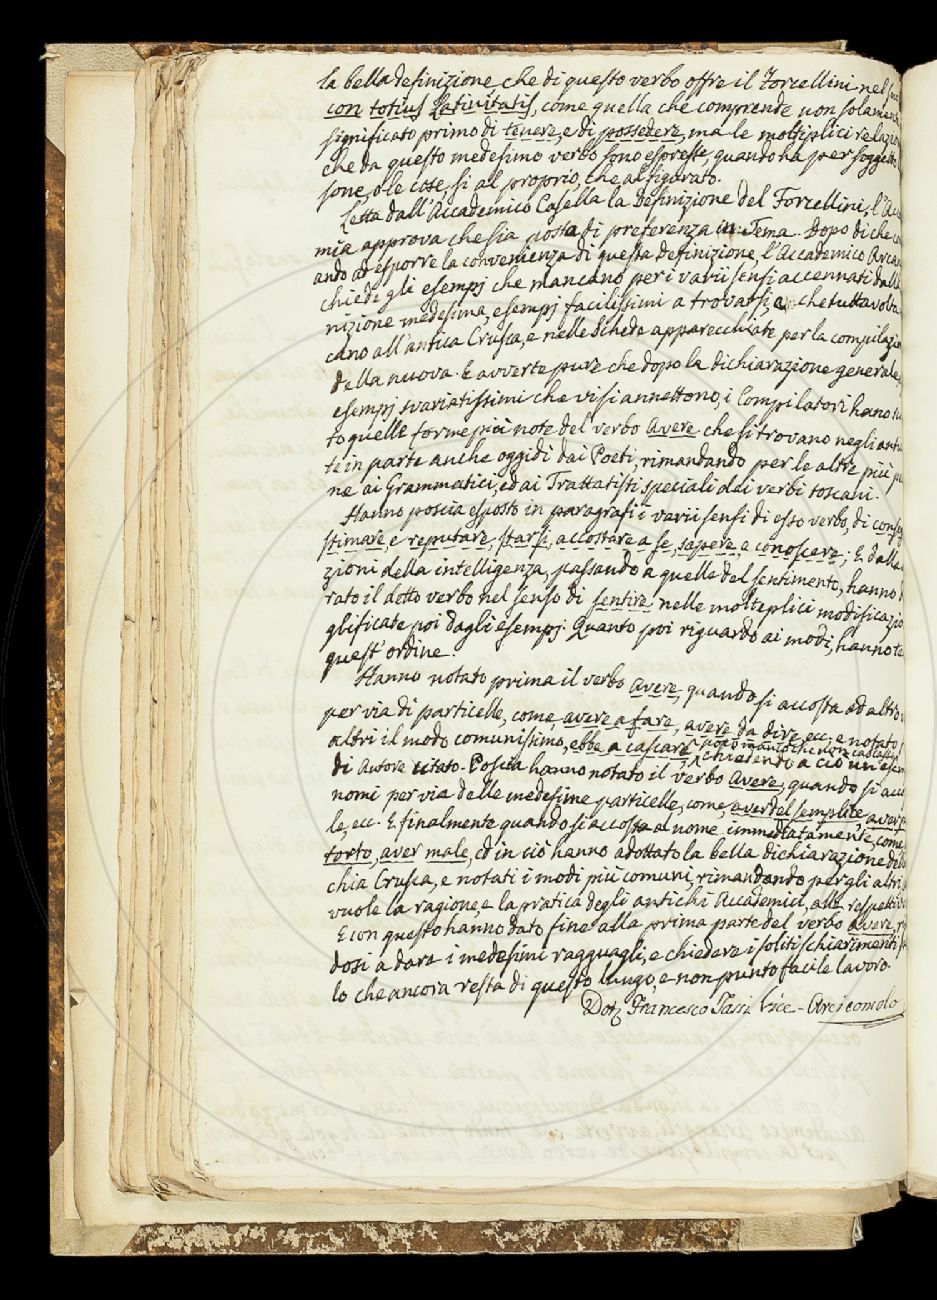 la bella definizione che di questo verbo offre il Forcellini nel
con totius Latinitatis, come quella che comprende non solamen
significato primo di tenere, e di possedere, ma le moltiplici relazio
che da questo medesimo verbo sono espresse, quando ha per sogge
sone, o le cose, sì al proprio, che al figurato.
Letta dall'Accademico Casella la definizione del Forcellini, l'Acca
mia approva che sia posta di preferenza in Tema. Dopo di che
ando ad esporre la convenienza di questa definizione, l'Accademico Arcan
chiede gli esempj che mancano per i varii sensi accennati dalla
nizione medesima, esempj facilissimi a trovarsi, e che tuttavolta
cano all'antica Crusca, e nelle schede apparecchiate per la compilazio
della nuova. E avverte pure che dopo la dichiarazione generale,
esempj svariatissimi che vi si annettono, i Compilatori hanno
to quelle forme più note del verbo Avere che si trovano negli anti
te in parte anche oggidì dai Poeti, rimandando per le altre più
ne ai Grammatici, ed ai Trattatisti speciali dei verbi toscani.
Hanno poscia esposto in paragrafi i varii sensi di esso verbo, di conseg
stimare, e reputare, starsi, accostare a se, sapere, e conoscere; E dalla
zioni della intelligenza, passando a quelle del sentimento, hanno
rato il detto verbo nel senso di sentire nelle molteplici modificazio
glificate poi dagli esempj. Quanto poi riguardo ai modi, hanno te
quest'ordine.
Hanno notato prima il verbo Avere, quando si accosta ad altro
per via di particelle, come avere a fare, avere da dire ecc. e notato
altri il modo comunissimo, ebbe a cascare, poco mancò che non cascasse, chiedendo a ciò un esem
di Autore citato. Poscia hanno notato il verbo Avere, quando si acco
nomi per via delle medesime particelle, come, aver del semplice, aver
le, ecc. E finalmente quando si accosta a nome immediatamente, come
torto, aver male, ed in ciò hanno adottato la bella dichiarazione della
chia Crusca, e notati i modi più comuni, rimandando per gli altri
vuole la ragione, e la pratica degli antichi Accademici, alle respetti
E con questo hanno dato fine alla prima parte del verbo avere,
dosi a dare i medesimi ragguagli, e chiedere i soliti schiarimenti
lo che ancora resta di questo lungo, e non punto facile lavoro.
Dott. Francesco Tassi Vice-Arciconsolo